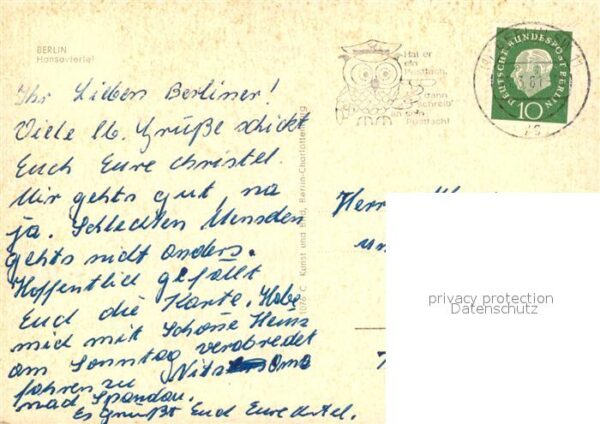 BERLIN
Hansaviertel
Ihr Lieben Berliner!
Viele lb. Grüße schickt
Euch Eure Christel.
Mir gehts gut, na
ja. Schlechten Menschen
gehts nicht anders.
Hoffentlich gefällt
Euch die Karte. Habe
mich mit
am Sonntag verabredet
fahren zu Oma
nach Spandau.
Es grüßt Euch Eure
1076 C Kunst und Bild, Berlin-Charlottenburg
Hat er
ein
Postfach,
dann
schreib'
an sein
Postfach!
DEUTSCHE BUNDESPOST BERLIN
10
Herrn
un
privacy protection
Datenschutz